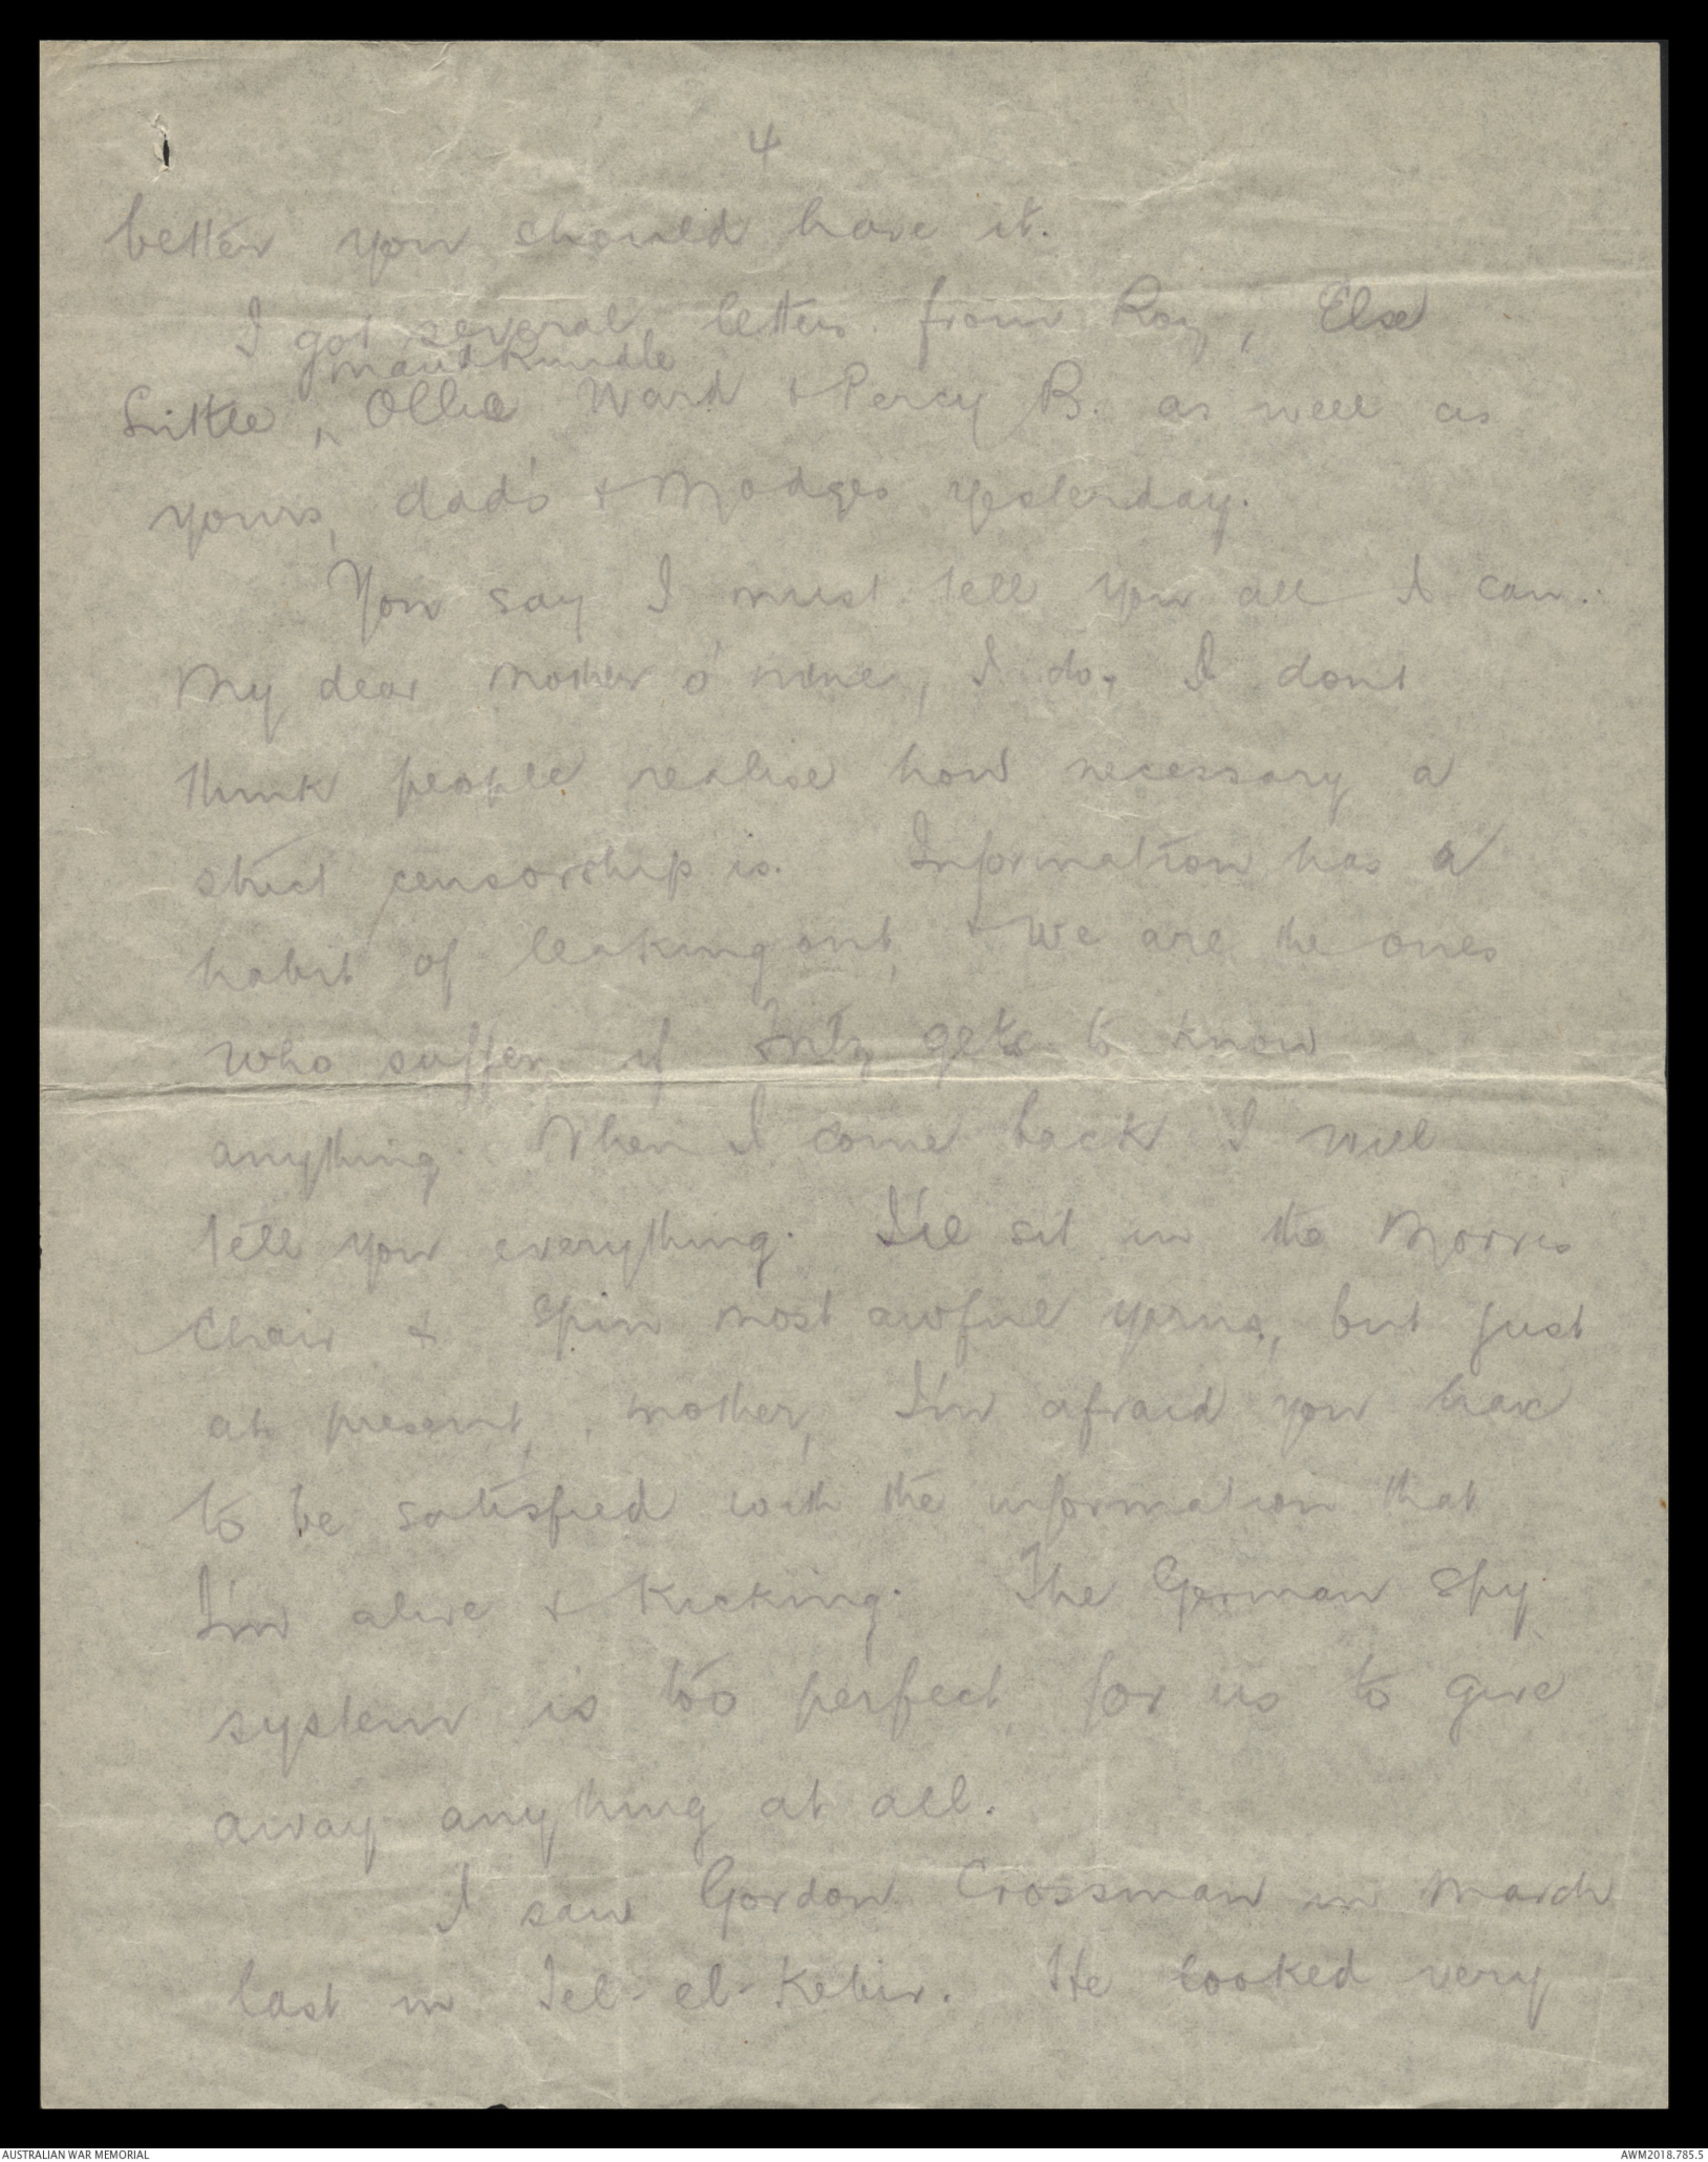 4
better you should have it.
I got several letters from Roy, Else
Maud Rundle
Little ^ Ollie Ward & Percy B. as well as
yours, dad's & Madges yesterday.
You say I must tell you all I can.
My dear mother o' mine, I do, I dont
think people realise how necessary a
strict censorship is. Information has a
habit of leaking out, & we are the ones
who suffer if Fritz gets to know
anything. When I come back I will
tell you everything. I'll sit in the Morris
chair & spin most awful yarns, but just
at present, mother, I'm afraid you have
to be satisfied with the information that
I'm alive & kicking. The German spy
system is too perfect for us to give
away anything at all.
I saw Gordon Crossman in March
last in Tel-el-Kebir. He looked very
AUSTRALIAN WAR MEMORIAL
AWM2018.785.5